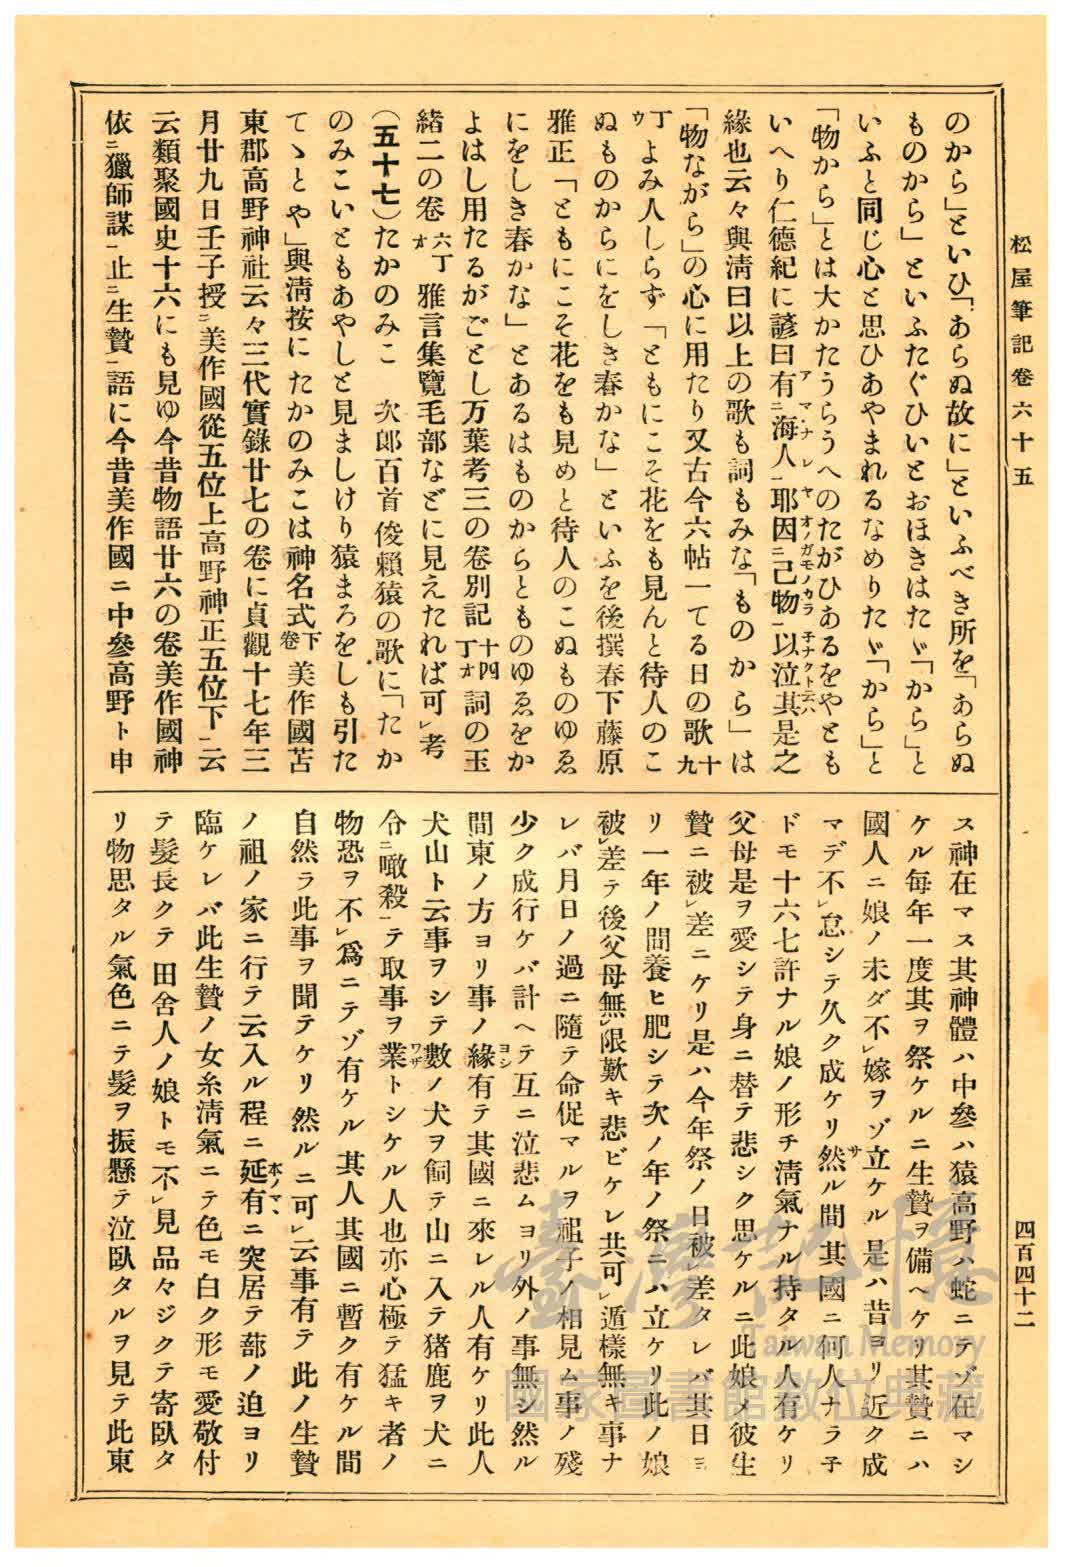 松屋筆記卷六十五
四百四十二
のから」といひ「あらぬ故に」といふべき所を「あらぬ
ものから」といふたぐひいとおほきはたゞ「から」と
いふと同じ心と思ひあやまれるなめりたゞ「から」と
「物から」とは大かたうらうへのたがひあるをやとも
いへり仁德紀に諺曰有ニ海人一耶因ニ己物一以泣其是之
緣也云々與淸曰以上の歌も詞もみな「ものから」は
「物ながら」の心に用たり又古今六帖一てる日の歌十九
丁ウよみ人しらず「ともにこそ花をも見んと待人のこ
ぬものからにをしき春かな」といふを後撰春下藤原
雅正「ともにこそ花をも見めと待人のこぬものゆゑ
にをしき春かな」とあるはものからとものゆゑをか
よはし用たるがごとし万葉考三の卷別記十四丁オ詞の玉
緖二の卷六丁オ雅言集覽毛部などに見えたれば可レ考
(五十七)たかのみこ 次郎百首俊賴猿の歌に「たか
のみこいともあやしと見ましけり猿まろをしも引た
てゝとや」與淸按にたかのみこは神名式下卷美作國苫
東郡高野神社云々三代實錄廿七の卷に貞觀十七年三
月廿九日壬子授ニ美作國從五位上高野神正五位下一云
云類聚國史十六にも見ゆ今昔物語廿六の卷美作國神
依ニ獵師謀一止ニ生贄一語に今昔美作國ニ中參高野ト申
ス神在マス其神體ハ中參ハ猿高野ハ蛇ニテゾ在マシ
ケル每年一度其ヲ祭ケルニ生贄ヲ備ヘケリ其贄ニハ
國人ニ娘ノ未ダ不レ嫁ヲゾ立ケル是ハ昔ヨリ近ク成
マデ不レ怠シテ久ク成ケリ然ル間其國ニ何人ナラ子
ドモ十六七許ナル娘ノ形チ淸氣ナル持タル人有ケリ
父母是ヲ愛シテ身ニ替テ悲シク思ケルニ此娘メ彼生
贄ニ被レ差ニケリ是ハ今年祭ノ日被レ差タレバ其日ヨ
リ一年ノ間養ヒ肥シテ次ノ年ノ祭ニハ立ケリ此ノ娘
被レ差テ後父母無レ限歎キ悲ビケレ共可レ遁樣無キ事ナ
レバ月日ノ過ニ隨テ命促マルヲ祖子ノ相見ム事ノ殘
少ク成行ケバ計ヘテ互ニ泣悲ムヨリ外ノ事無シ然ル
間東ノ方ヨリ事ノ緣有テ其國ニ來レル人有ケリ此人
犬山ト云事ヲシテ數ノ犬ヲ飼テ山ニ入テ猪鹿ヲ犬ニ
令ニ噉殺一テ取事ヲ業トシケル人也亦心極テ猛キ者ノ
物恐ヲ不レ爲ニテゾ有ケル其人其國ニ暫ク有ケル間
自然ラ此事ヲ聞テケリ然ルニ可レ云事有テ此ノ生贄
ノ祖ノ家ニ行テ云入ル程ニ延有ニ突居テ蔀ノ迫ヨリ
臨ケレバ此生贄ノ女糸淸氣ニテ色モ白ク形モ愛敬付
テ髮長クテ田舍人ノ娘トモ不レ見品々ジクテ寄臥タ
リ物思タル氣色ニテ髮ヲ振懸テ泣臥タルヲ見テ此東
臺灣記憶
Taiwan Memory
國家圖書館數位典藏